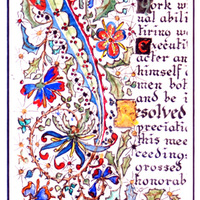 york w
ual abili
tiring w
Executi
acter an
himself a
men bot
and be i
solved
preciati
this mee
ceeding
grossed
honorab